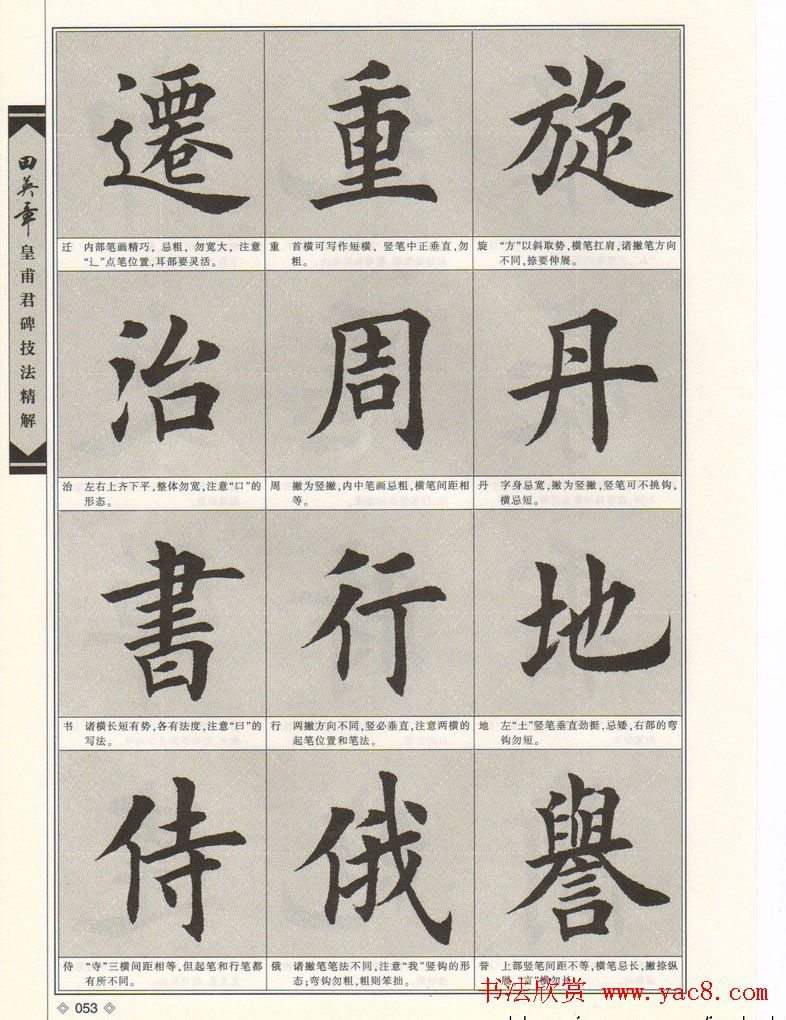 田英章
皇甫君碑技法精解
遷
重
旋
迁 内部笔画精巧，忌粗，勿宽大，注意
“辶”点笔位置，耳部要灵活。
重 首横可写作短横，竖笔中正垂直，勿
粗。
旋 “方”以斜取势，横笔扛肩，诸撇笔方向
不同，捺要伸展。
治
周
丹
治 左右上齐下平，整体勿宽，注意“口”的
形态。
周 撇为竖撇，内中笔画忌粗，横笔间距相
等。
丹 字身忌宽，撇为竖撇，竖笔可不挑钩，
横忌短。
書
行
地
书 诸横长短有势，各有法度，注意“曰”的
写法。
行 两撇方向不同，竖必垂直，注意两横的
起笔位置和笔法。
地 左“土”竖笔垂直劲挺，忌矮，右部的弯
钩勿短。
侍
俄
譽
侍 “寺”三横间距相等，但起笔和行笔都
有所不同。
俄 诸撇笔笔法不同，注意“我”竖钩的形
态；弯钩勿粗，粗则笨拙。
誉 上部竖笔间距不等，横笔忌长，撇捺纵
展，“言”横勿长。
053
书法欣赏 www.yac8.com